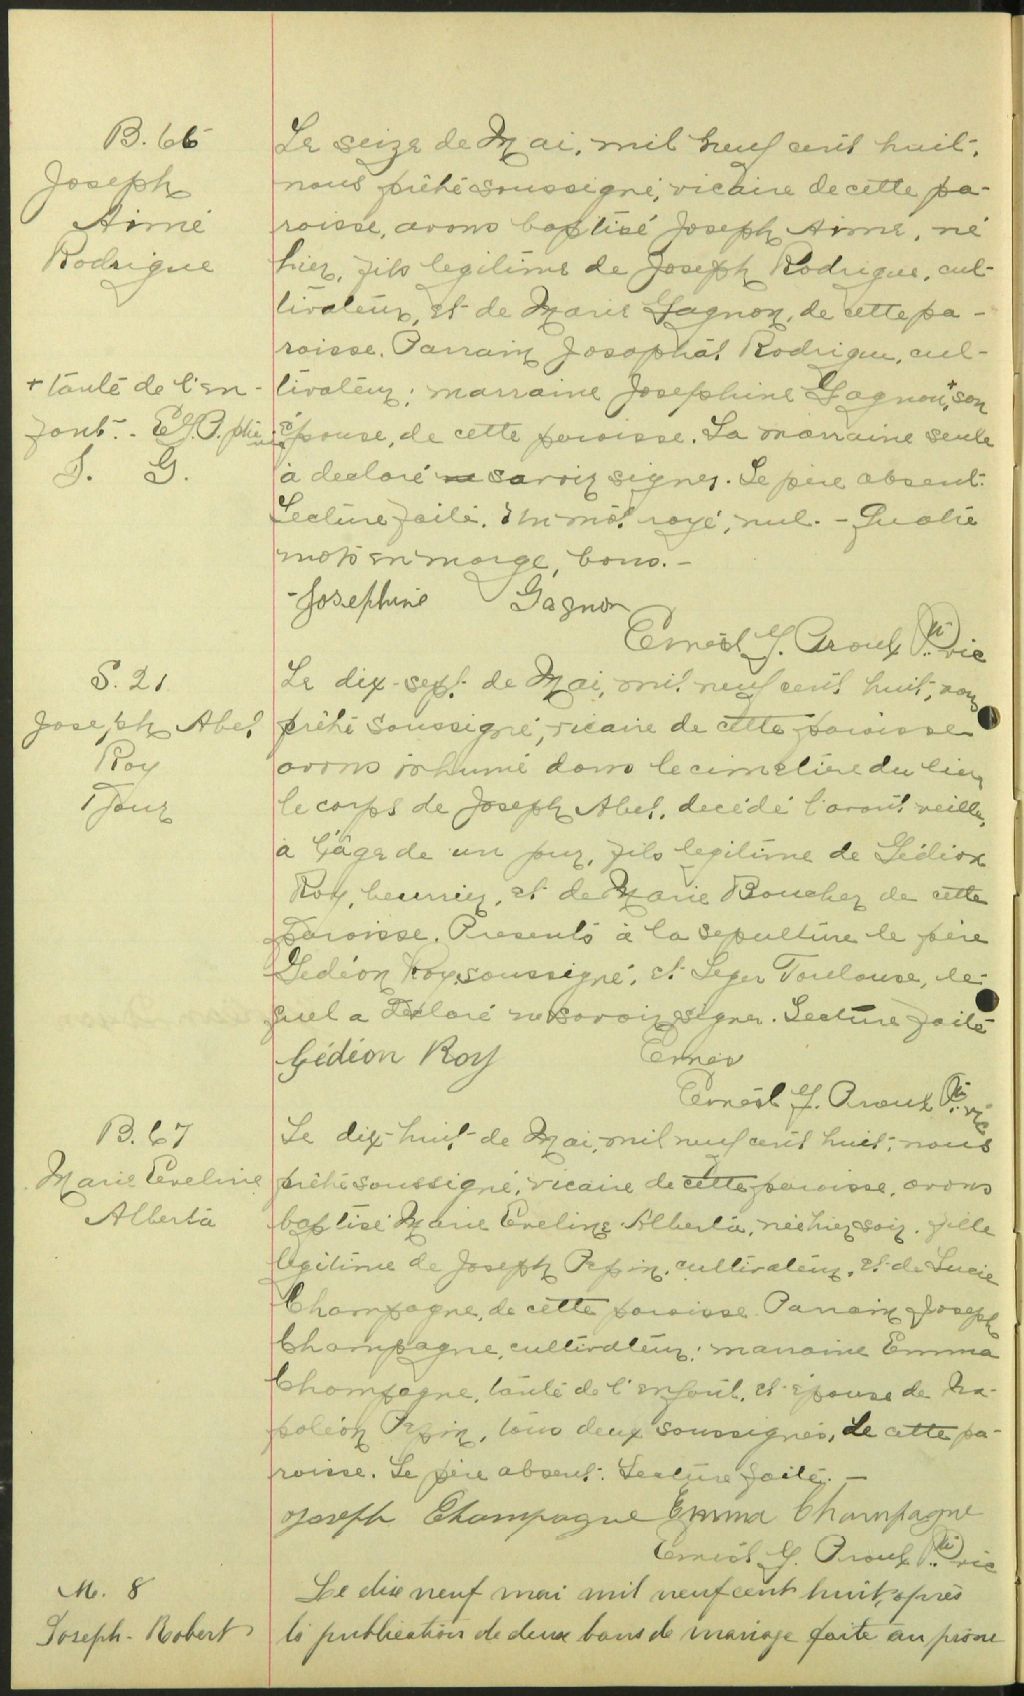 B. 66
Joseph
Aimé
Rodrigue
Le seize de Mai, mil neuf cent huit,
nous prêtre soussigné, vicaire de cette pa-
roisse, avons baptisé Joseph Aimé, né
hier, fils legitime de Joseph Rodrigue, cul-
tivateur, et de Marie Gagnon, de cette pa-
roisse. Parrain Josaphat Rodrigue, cul-
tivateur; marraine Josephine Gagnon,+ son
épouse, de cette paroisse. La marraine seule
a declaré ne savoir signer. Le père absent.
Lecture faite. Un mot rayé, nul. - Quatre
mots en marge, bons. -
+ tante de l'en-
fant. - E.J.P. ptre
J. G.
Josephine Gagnon
Ernest J. Proulx Ptr. vic
S. 21
Joseph Abel
Roy
1 Jour
Le dix-sept de Mai, mil neuf cent huit, nous
prêtre soussigné, vicaire de cette paroisse
avons inhumé dans le cimetière du lieu
le corps de Joseph Abel, decédé l'avant veille,
à l'âge de un jour, fils legitime de Gédéon
Roy, beurrier, et de Marie Boucher de cette
paroisse. Presents à la sepulture le père
Gedéon Roy, soussigné, et Leger Toulouse, le-
quel a declaré ne savoir signer. Lecture faite
Gédéon Roy Ernes
Ernest J. Proulx Ptr. vic
B. 67
Marie Eveline
Alberta
Le dix-huit de Mai, mil neuf cent huit, nous
prêtre soussigné, vicaire de cette paroisse, avons
baptisé Marie Eveline Alberta, née hier soir, fille
legitime de Joseph Pepin, cultivateur, et de Lucie
Champagne, de cette paroisse. Parrain Joseph
Champagne, cultivateur; marraine Emma
Champagne, tante de l'enfant, et épouse de Na-
poléon Pepin, tous deux soussignés, de cette pa-
roisse. Le père absent. Lecture faite. -
Joseph Champagne Emma Champagne
Ernest J. Proulx Ptr. vic
M. 8
Joseph - Robert
Le dix neuf mai mil neuf cent huit, après
la publication de deux bans de mariage faite au prône